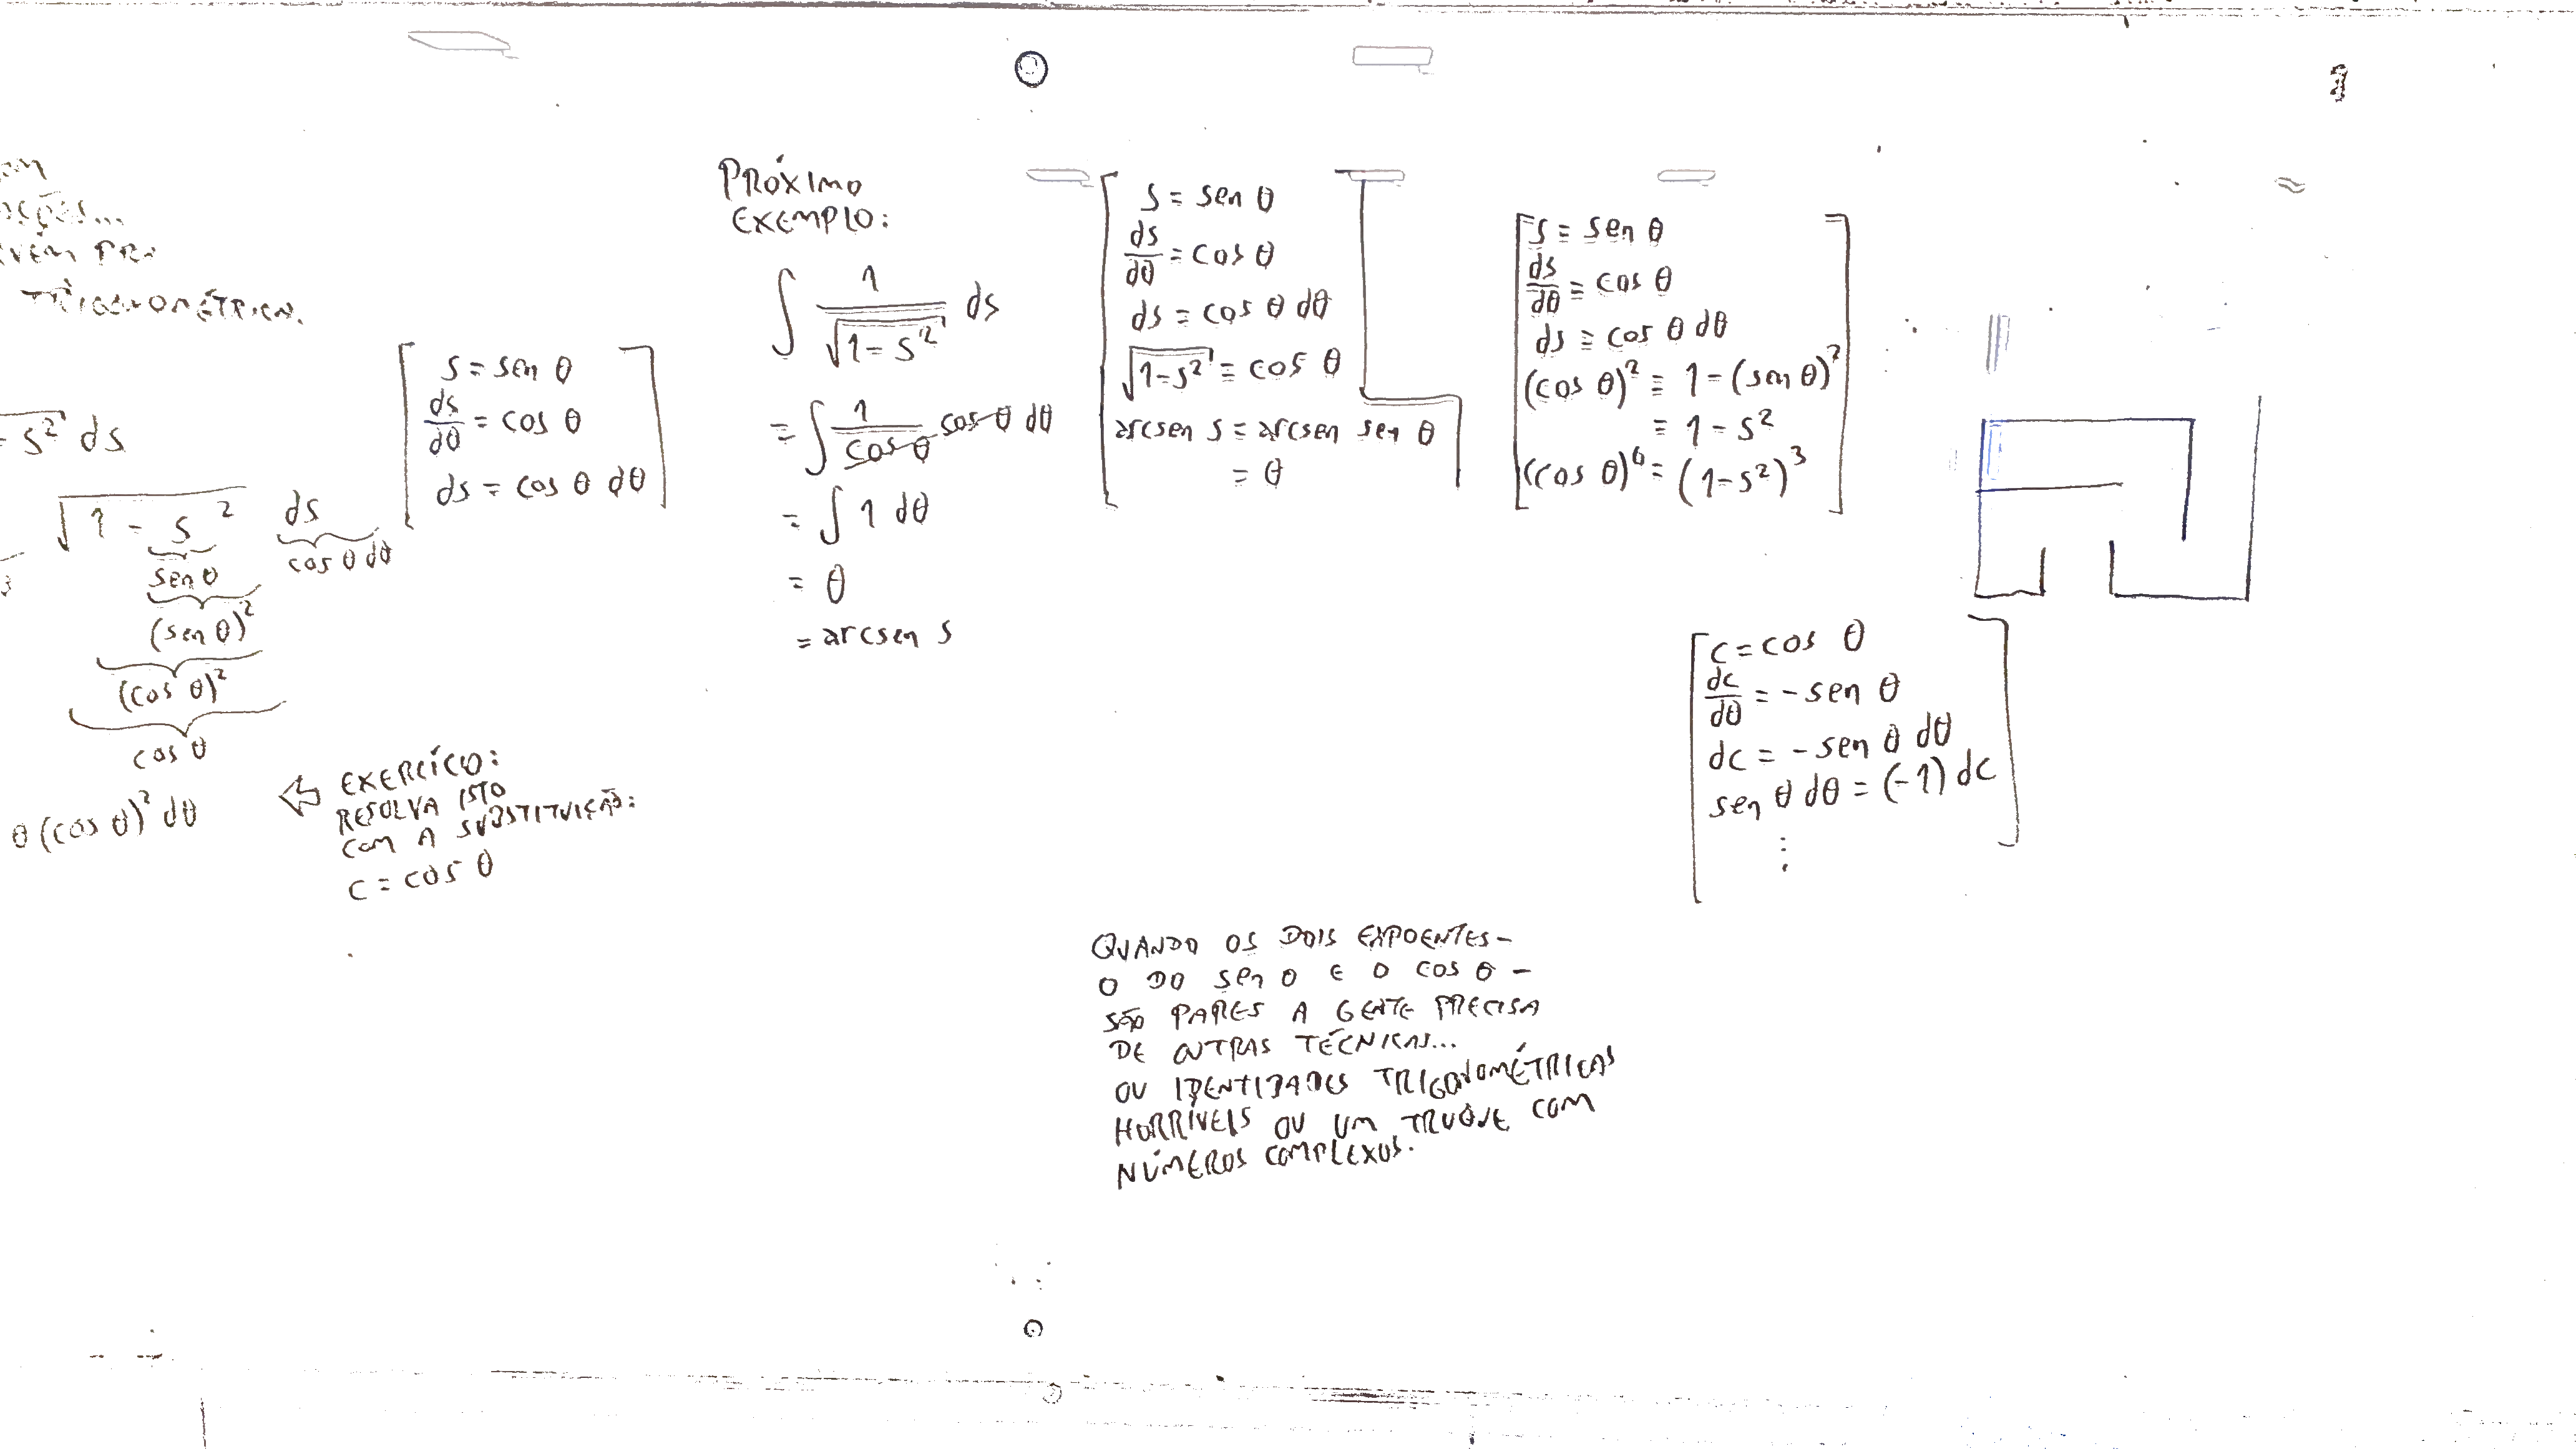 TRIGONOMÉTRICA.
s² ds
√1 - s² ds
sen θ
cos θ dθ
(sen θ)²
(cos θ)²
cos θ
θ (cos θ)² dθ
⇐ EXERCÍCIO:
RESOLVA ISTO
COM A SUBSTITUIÇÃO:
c = cos θ
[s = sen θ
ds/dθ = cos θ
ds = cos θ dθ]
PRÓXIMO
EXEMPLO:
∫ 1/√1-s² ds
= ∫ 1/cos θ cos θ dθ
= ∫ 1 dθ
= θ
= arcsen s
[s = sen θ
ds/dθ = cos θ
ds = cos θ dθ
√1-s² = cos θ
arcsen s = arcsen sen θ
= θ]
[s = sen θ
ds/dθ = cos θ
ds = cos θ dθ
(cos θ)² = 1-(sen θ)²
= 1-s²
(cos θ)⁶ = (1-s²)³]
[c = cos θ
dc/dθ = -sen θ
dc = -sen θ dθ
sen θ dθ = (-1) dc
⋮]
QUANDO OS DOIS EXPOENTES -
O DO sen θ E O cos θ -
SÃO PARES A GENTE PRECISA
DE OUTRAS TÉCNICAS...
OU IDENTIDADES TRIGONOMÉTRICAS
HORRÍVEIS OU UM TRUQUE COM
NÚMEROS COMPLEXOS.